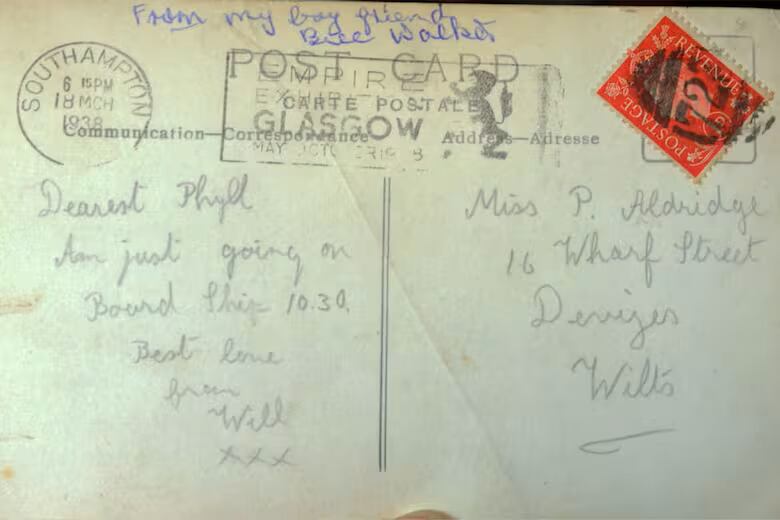 From my boy friend
Bill Walker
POST CARD
CARTE POSTALE
Communication—Correspondance
Address—Adresse
SOUTHAMPTON
6 15PM
18 MCH
1938
EMPIRE
GLASGOW
MAY
REVENUE
POSTAGE
72
Dearest Phyll
Am just going on
Board Ship 10.30.
Best love
from
Will
xxx
Miss P. Aldridge
16 Wharf Street
Devizes
Wilts